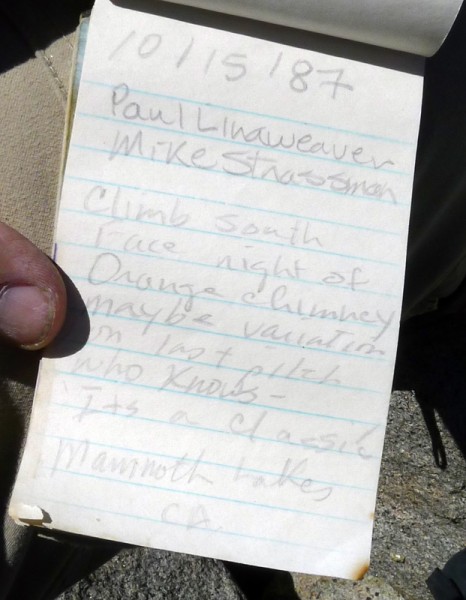 10/15/87
Paul Linaweaver
Mike Strassman
Climb South
Face right of
Orange chimney
maybe variation
on last pitch
who knows-
Its a classic
Mammoth Lakes
CA